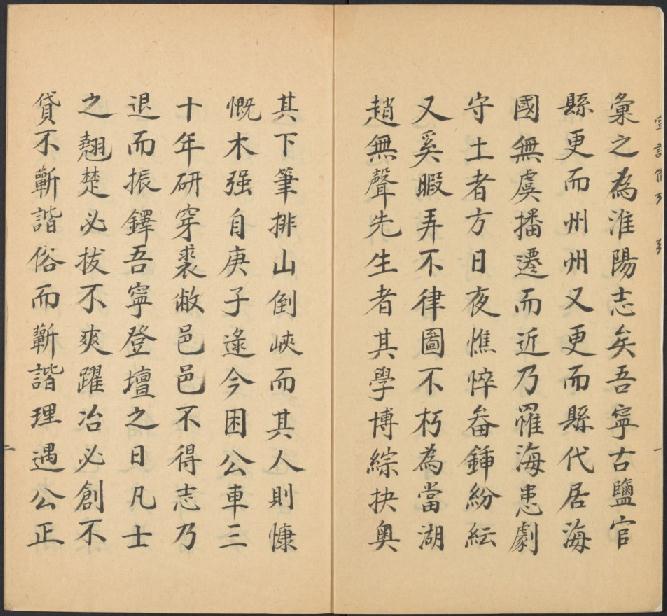 彙之為淮陽志矣吾寧古鹽官
縣更而州州又更而縣代居海
國無虞播遷而近乃罹海患劇
守土者方日夜憔悴畚鍤紛紜
又奚暇弄不律圖不朽為當湖
趙無聲先生者其學博綜抉奥
其下筆排山倒峽而其人則慷
慨木强自庚子逺今困公車三
十年研穿裘敝邑邑不得志乃
退而振鐸吾寧登壇之日凡士
之翹楚必拔不爽躍冶必創不
貸不蘄諧俗而蘄諧理遇公正